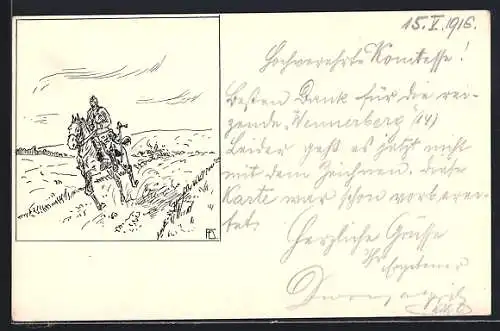 15.V.1916.
Hochverehrte Komtesse!
Besten Dank für die rei-
zende „Wennerberg"
Leider geht es jetzt nicht
mit dem Zeichnen, diese
Karte war schon vorberei-
tet.
Herzliche Grüsse
Ihr ergebener